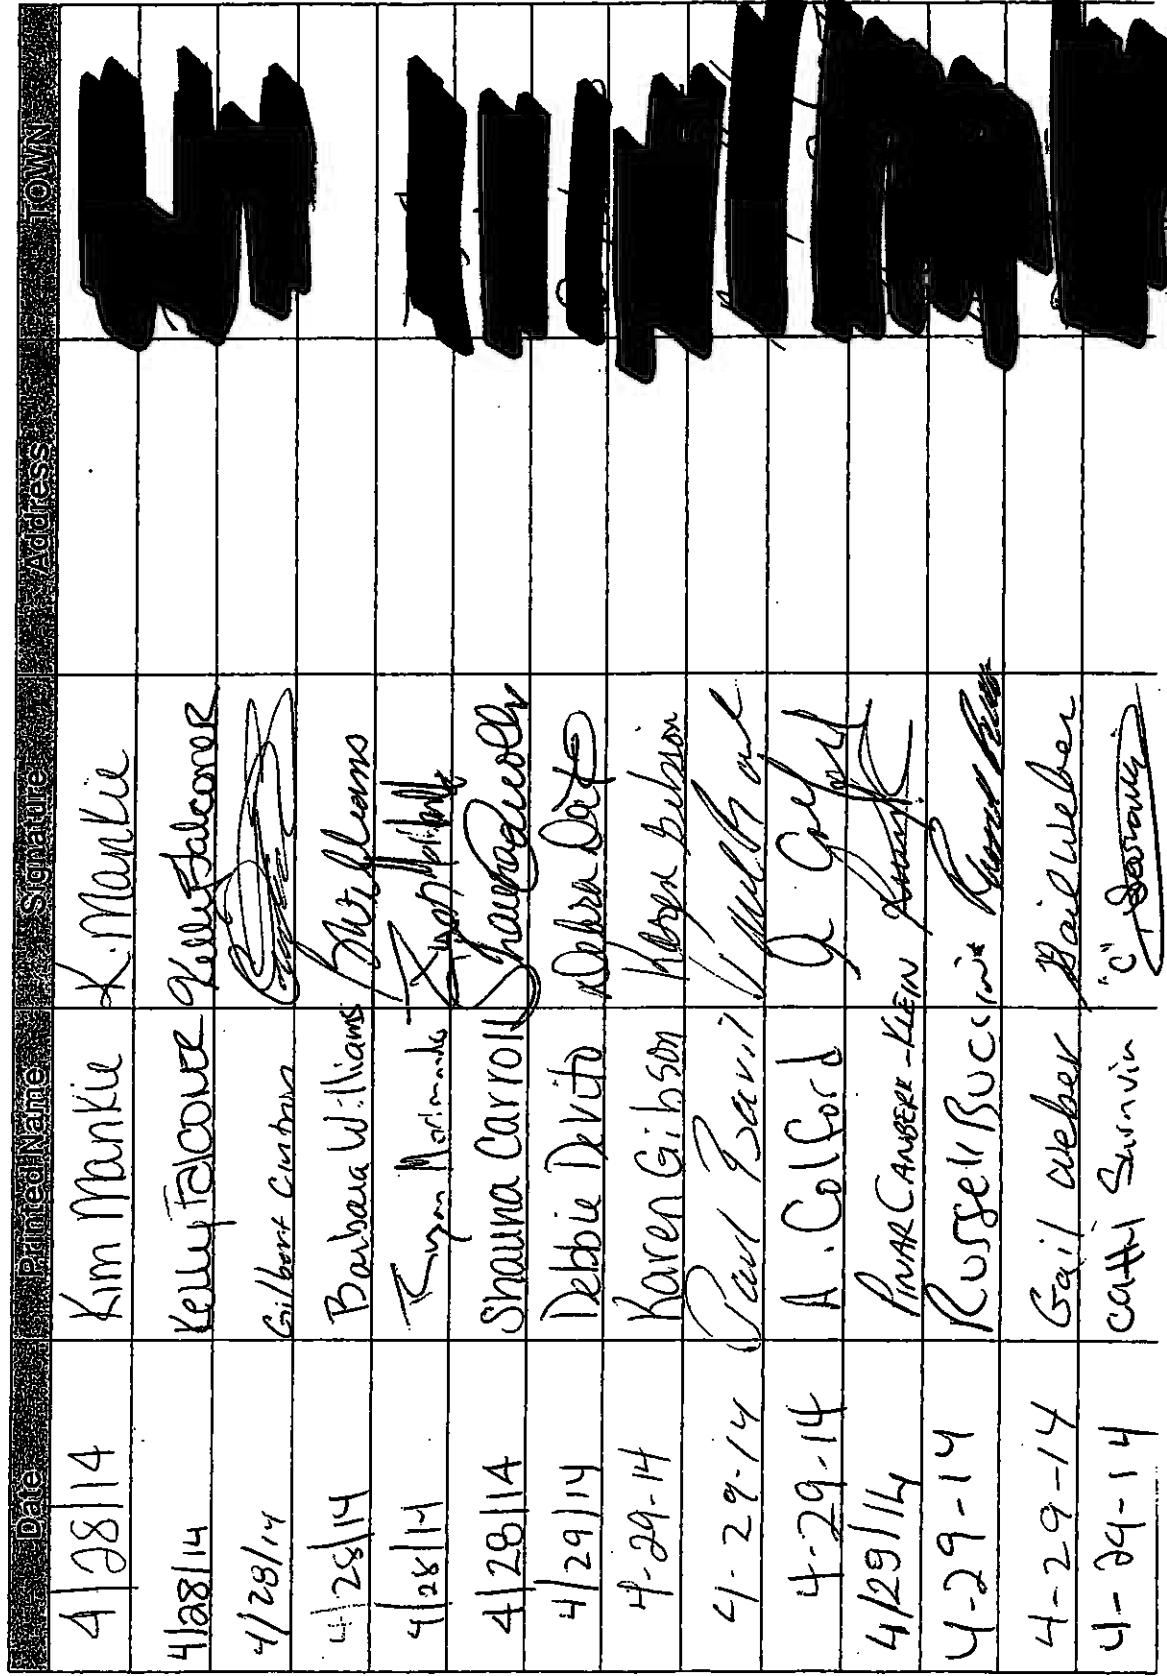 Date Printed Name Signature Address TOWN
4/28/14 Kim Mankie K. Mankie
4/28/14 Kelly Falconer Kelly Falconer
4/28/14 Gilbert Cintron
4/28/14 Barbara Williams BWilliams
4/28/14
4/28/14 Shauna Carroll
4/29/14 Debbie DeVito Debra DeVito
4-29-14 Karen Gibson Karen Gibson
4-29-14 Paul
4-29-14 A. Colford
4/29/14 PINAR CANBERK-KLEIN
4-29-14 Russell
4-29-14 Gail Weber Gail Weber
4-29-14 Cathy "C"